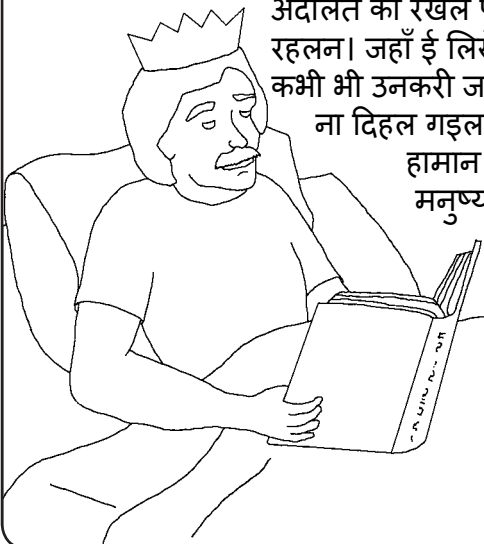 अदालत का रखल
रहलन। जहाँ ई
कभी भी उनकरी
ना दिहल गइल
हामान
मनुष्य